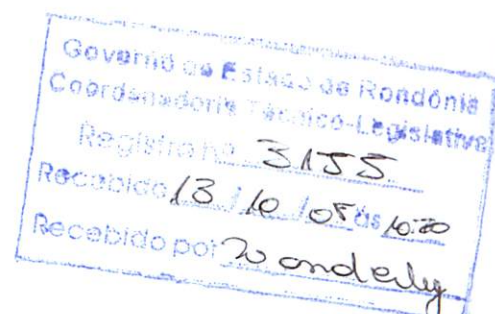 Governo do Estado de Rondônia
Coordenadoria Técnico-Legislativa
Registro nº 3155
Recebido 13 / 10 / 05 às 10:20
Recebido por Wanderly